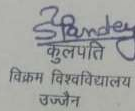 SPandey
कुलपति
विक्रम विश्वविद्यालय
उज्जैन